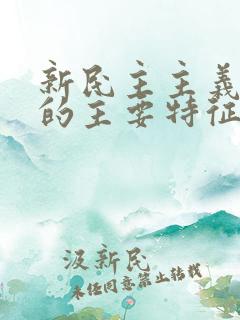 新民主主義
的主要特征
汲新民
未经同意禁止转载